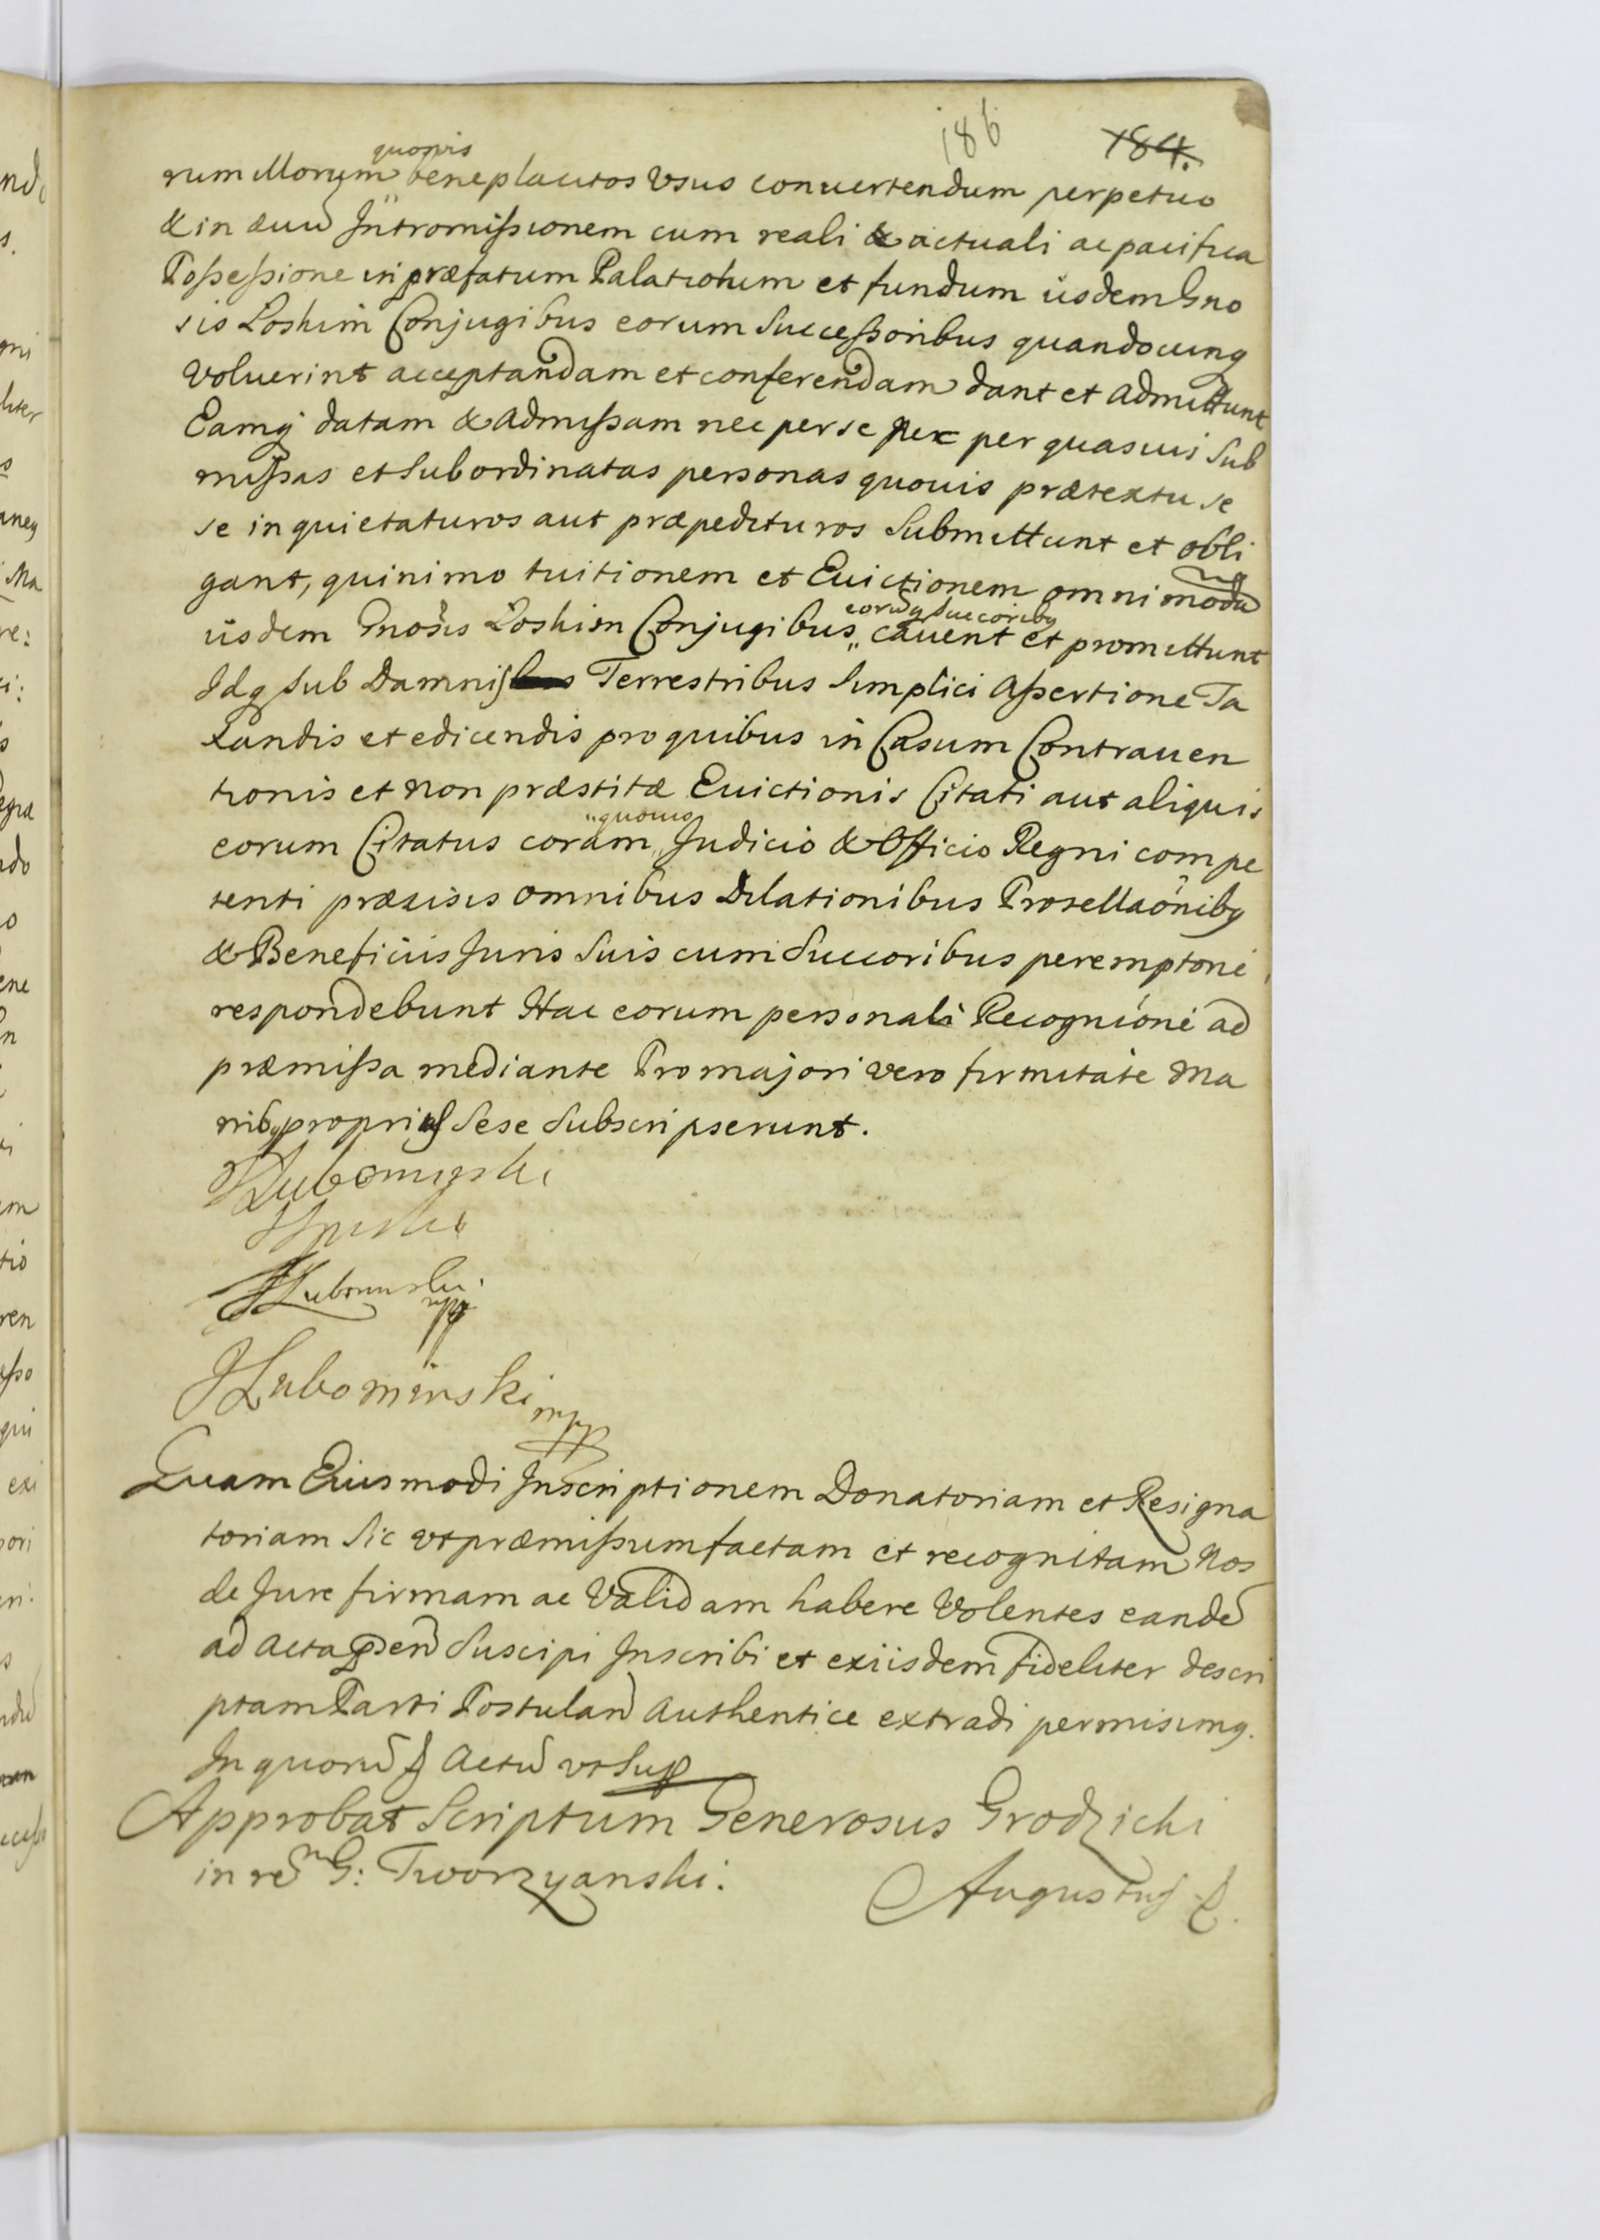 186 184.
quosvis
rum illorum beneplacitos Usus convertendum perpetuo
& in ævũ Intromissionem cum reali & actuali ac pacifica
Possessione in præfatum Palatiolum et fundum iisdem Gno
sis Loskim Conjugibus eorum Successoribus quandocunq
Voluerint acceptandam et conferendam dant et admittunt
Eamq datam & admissam nec per se nec per quasvis Sub
missas et Subordinatas personas quovis prætextu se
se inquietaturos aut præpedituros Submittunt et obli
gant, quinimo tuitionem et Evictionem omnimodã
eorũq Succoribq
iisdem Gnosis Łoskim Conjugibus „ cavent et promittunt
Idq sub Damnis Terrestribus Simplici Assertione Ta
xandis et edicendis pro quibus in Casum Contraven
tionis et non præstitæ Evictionis Citati aut aliquis
„quovis
eorum Citatus coram „ Judicio & Officio Regni compe
tenti præcisis omnibus Dilationibus Protellaõnibq
& Beneficiis Juris Suis cum Succoribus peremptorie
respondebunt Hac eorum personali Recognióne ad
præmissa mediante Pro majori vero firmitate Ma
nibq propriis Sese Subscripserunt.
Lubomirski
Lubomirski
mpp
JLubomirski
mpp
Quam Eiusmodi Inscriptionem Donatoriam et Resigna
toriam Sic ut præmissum factam et recognitam Nos
de Jure firmam ac Validam habere Volentes eandẽ
ad Acta p̃sen Suscipi Inscribi et ex iisdem fideliter descri
ptam Parti Postulan Authentice extradi permisimq.
In quorũ f Actũ ut Sup
Approbat Scriptum Generosus Grodzicki
in rem G: Tworzyanski.
Augustus R.